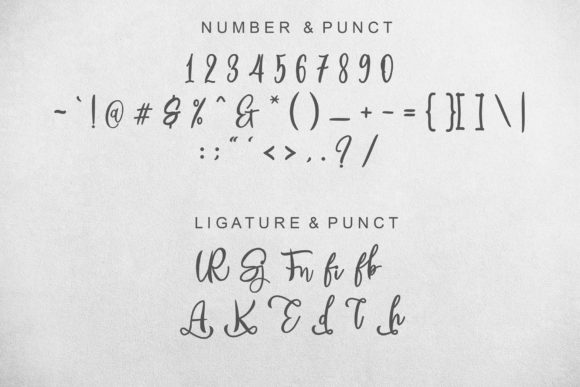 NUMBER & PUNCT
1 2 3 4 5 6 7 8 9 0
~ ` ! @ # $ % ^ & * ( ) _ + - = { } [ ] \ |
: ; “ ‘ < > , . ? /
LIGATURE & PUNCT
UR Sj Fn fi fb
A K E d T h